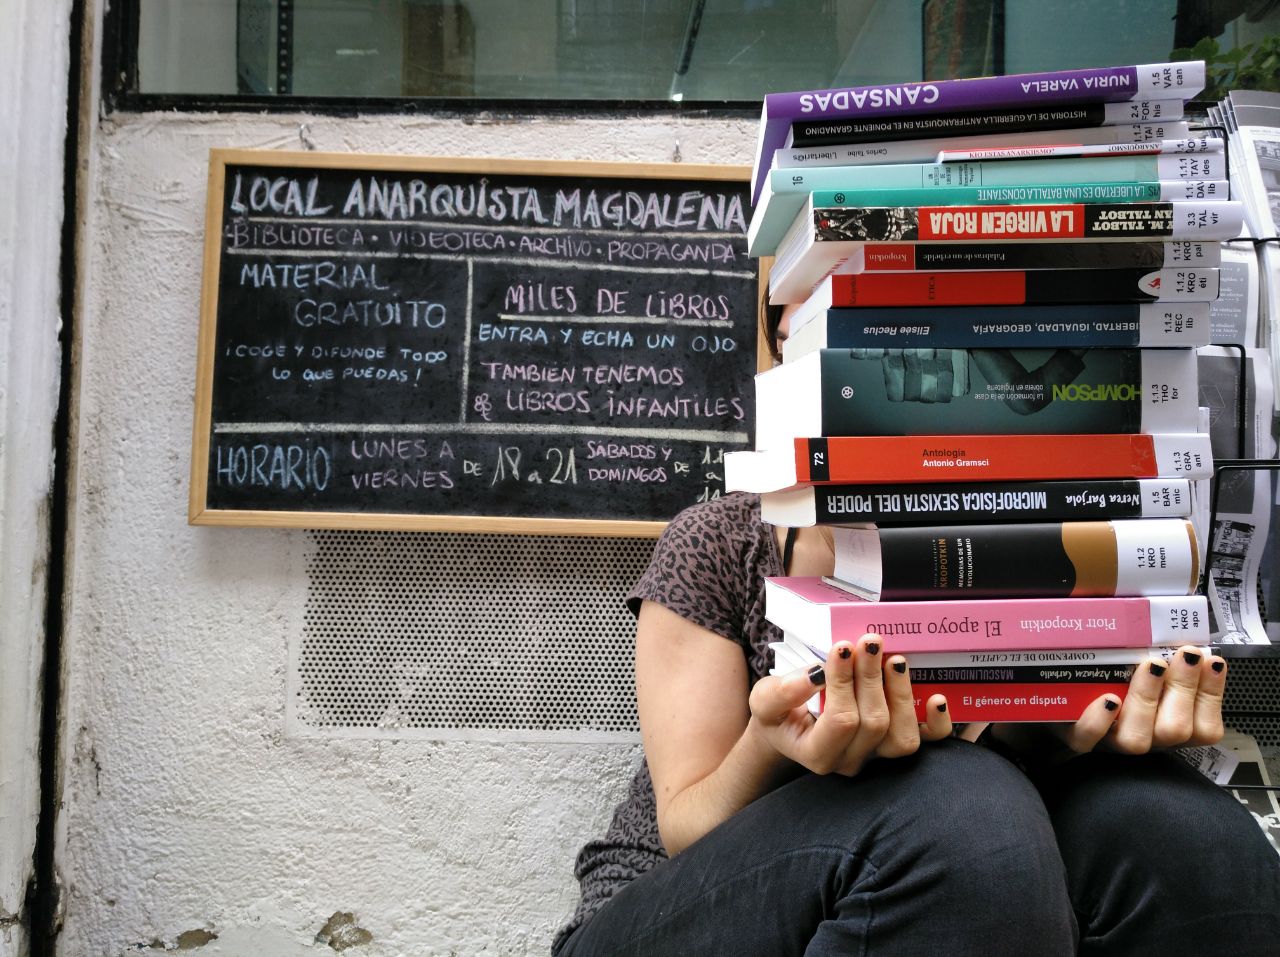 LOCAL ANARQUISTA MAGDALENA
BIBLIOTECA · VIDEOTECA · ARCHIVO · PROPAGANDA
MATERIAL
GRATUITO
¡COGE Y DIFUNDE TODO
LO QUE PUEDAS!
MILES DE LIBROS
ENTRA Y ECHA UN OJO
TAMBIEN TENEMOS
& LIBROS INFANTILES
HORARIO
LUNES A
VIERNES
DE 18 a 21
SÁBADOS Y
DOMINGOS
DE
CANSADAS NURIA VARELA
1.5 VAR can
HISTORIA DE LA GUERRILLA ANTIFRANQUISTA EN EL PONIENTE GRANADINO
2.4 FOR his
Libertari@s Carlos Taibo
1.1.2 TAI lib
16
1.1.1 TAY des
LA LIBERTAD ES UNA BATALLA CONSTANTE
1.1. DAV lib
LA VIRGEN ROJA
M. TALBOT
AN TALBOT
3.3 TAL vir
Kropotkin Palabras de un rebelde
1.1.2 KRO pal
Kropotkin ETICA
1.1.2 KRO éti
Elisée Reclus LIBERTAD, IGUALDAD, GEOGRAFÍA
1.1.2 REC lib
THOMPSON
La formación de la clase
obrera en Inglaterra
1.1.3 THO for
72
Antología
Antonio Gramsci
1.1.3 GRA ant
MICROFÍSICA SEXISTA DEL PODER Nerea Barjola
1.5 BAR mic
KROPOTKIN
MEMORIAS DE UN
REVOLUCIONARIO
1.1.2 KRO mem
El apoyo mutuo Piotr Kropotkin
1.1.2 KRO apo
COMPENDIO DE EL CAPITAL
MASCULINIDADES Y FEM
Azpiazu Carballo
El género en disputa